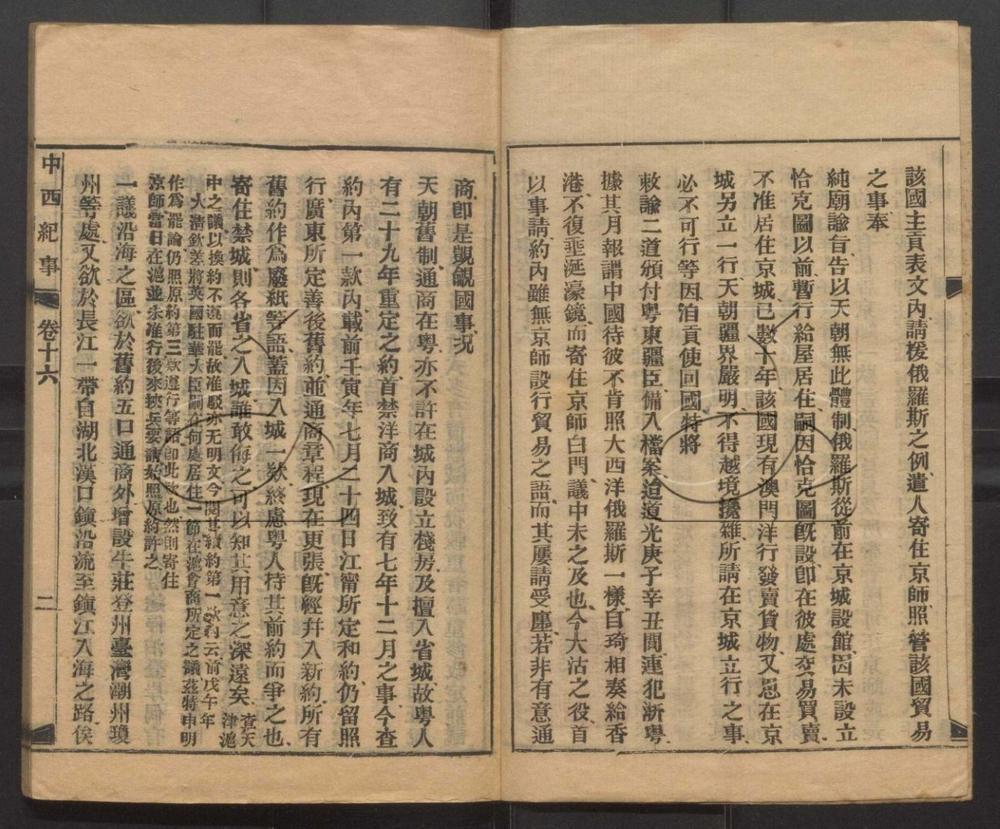 該國主貢表文內請援俄羅斯之例遣人寄住京師照管該國貿易
之事奉
純廟諭旨告以天朝無此體制俄羅斯從前在京城設館因未設立
恰克圖以前暫行給屋居住嗣因恰克圖旣設卽在彼處交易買賣
不准居住京城已數十年該國現有澳門洋行發賣貨物又思在京
城另立一行天朝疆界嚴明不得越境攙雜所請在京城立行之事
必不可行等因洎貢使回國特將
敕諭二道頒付粵東疆臣備入檔案迨道光庚子辛丑間連犯浙粵
據其月報謂中國待彼不肯照大西洋俄羅斯一樣自琦相奏給香
港不復垂涎濠鏡而寄住京師白門一議中未之及也今大沽之役首
以事請約內雖無京師設行貿易之語而其屢請受廛若非有意通
商卽是覬覦國事况
天朝舊制通商在粵亦不許在城內設立棧房及擅入省城故粵人
有二十九年重定之約首禁洋商入城致有七年十二月之事今查
約內第一款內載前壬寅年七月二十四日江甯所定和約仍留照
行廣東所定善後舊約並通商章程現在更張旣經幷入新約所有
舊約作爲廢紙等語蓋因入城一款終慮粵人持其前約而爭之也
寄住禁城則各省之入城誰敢侮之可以知其用意之深遠矣 查天津滬
中之議以換約不遶而罷故准駁亦无明文今閱其續約第一款內云前戊午年
大淸欽差將英國駐華大臣嗣在何處居住一節在滬會商所定之議茲特申明
作爲罷論仍照原約第三款遵行等語卽此款也然則寄住
京師當日在滬並未准行後來挾兵要請始照原約許之
一議沿海之區欲於舊約五口通商外增設牛莊登州臺灣潮州瓊
州等處又欲於長江一帶自湖北漢口鎭沿流至鎭江入海之路俟
中西紀事
卷十六
二